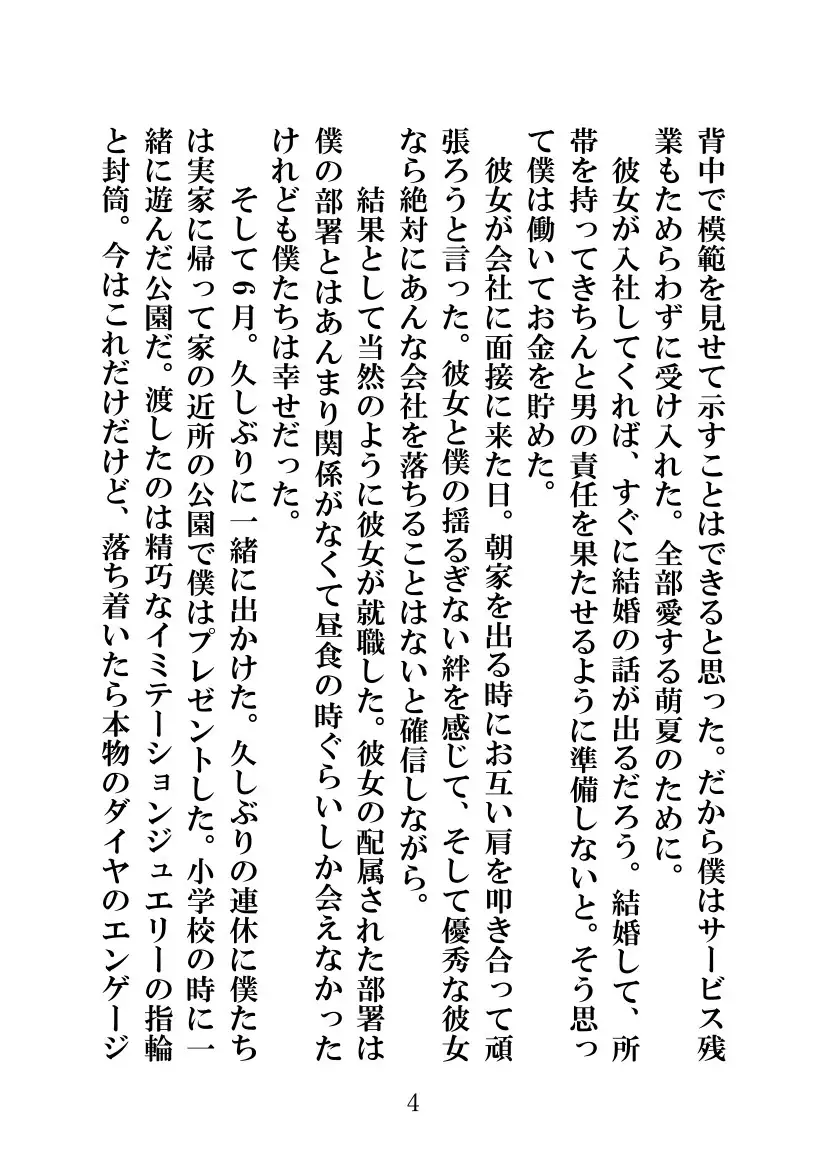 背中で模範を見せて示すことはできると思った。だから僕はサービス残
業もためらわずに受け入れた。全部愛する萌夏のために。
　彼女が入社してくれば、すぐに結婚の話が出るだろう。結婚して、所
帯を持ってきちんと男の責任を果たせるように準備しないと。そう思っ
て僕は働いてお金を貯めた。
　彼女が会社に面接に来た日。朝家を出る時にお互い肩を叩き合って頑
張ろうと言った。彼女と僕の揺るぎない絆を感じて、そして優秀な彼女
なら絶対にあんな会社を落ちることはないと確信しながら。
　結果として当然のように彼女が就職した。彼女の配属された部署は
僕の部署とはあんまり関係がなくて昼食の時ぐらいしか会えなかった
けれども僕たちは幸せだった。
　そして6月。久しぶりに一緒に出かけた。久しぶりの連休に僕たち
は実家に帰って家の近所の公園で僕はプレゼントした。小学校の時に一
緒に遊んだ公園だ。渡したのは精巧なイミテーションジュエリーの指輪
と封筒。今はこれだけだけど、落ち着いたら本物のダイヤのエンゲージ
4